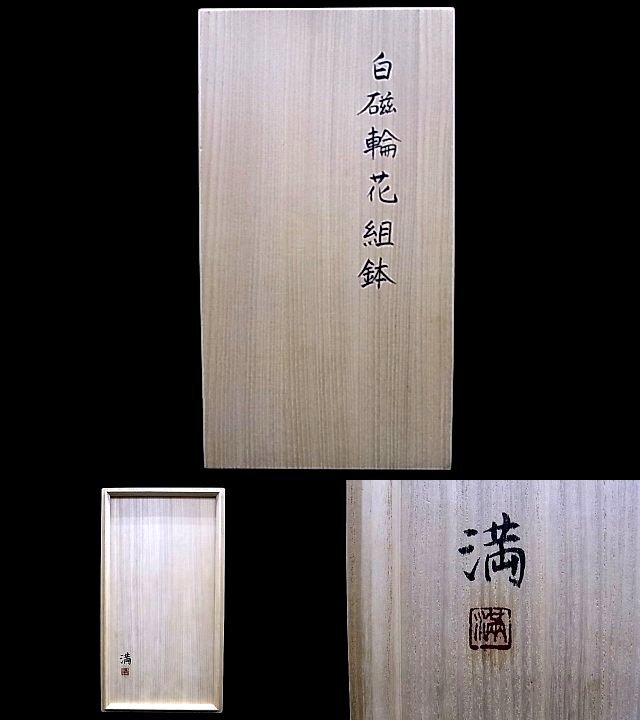 白磁輪花組鉢
満
満
満
滿